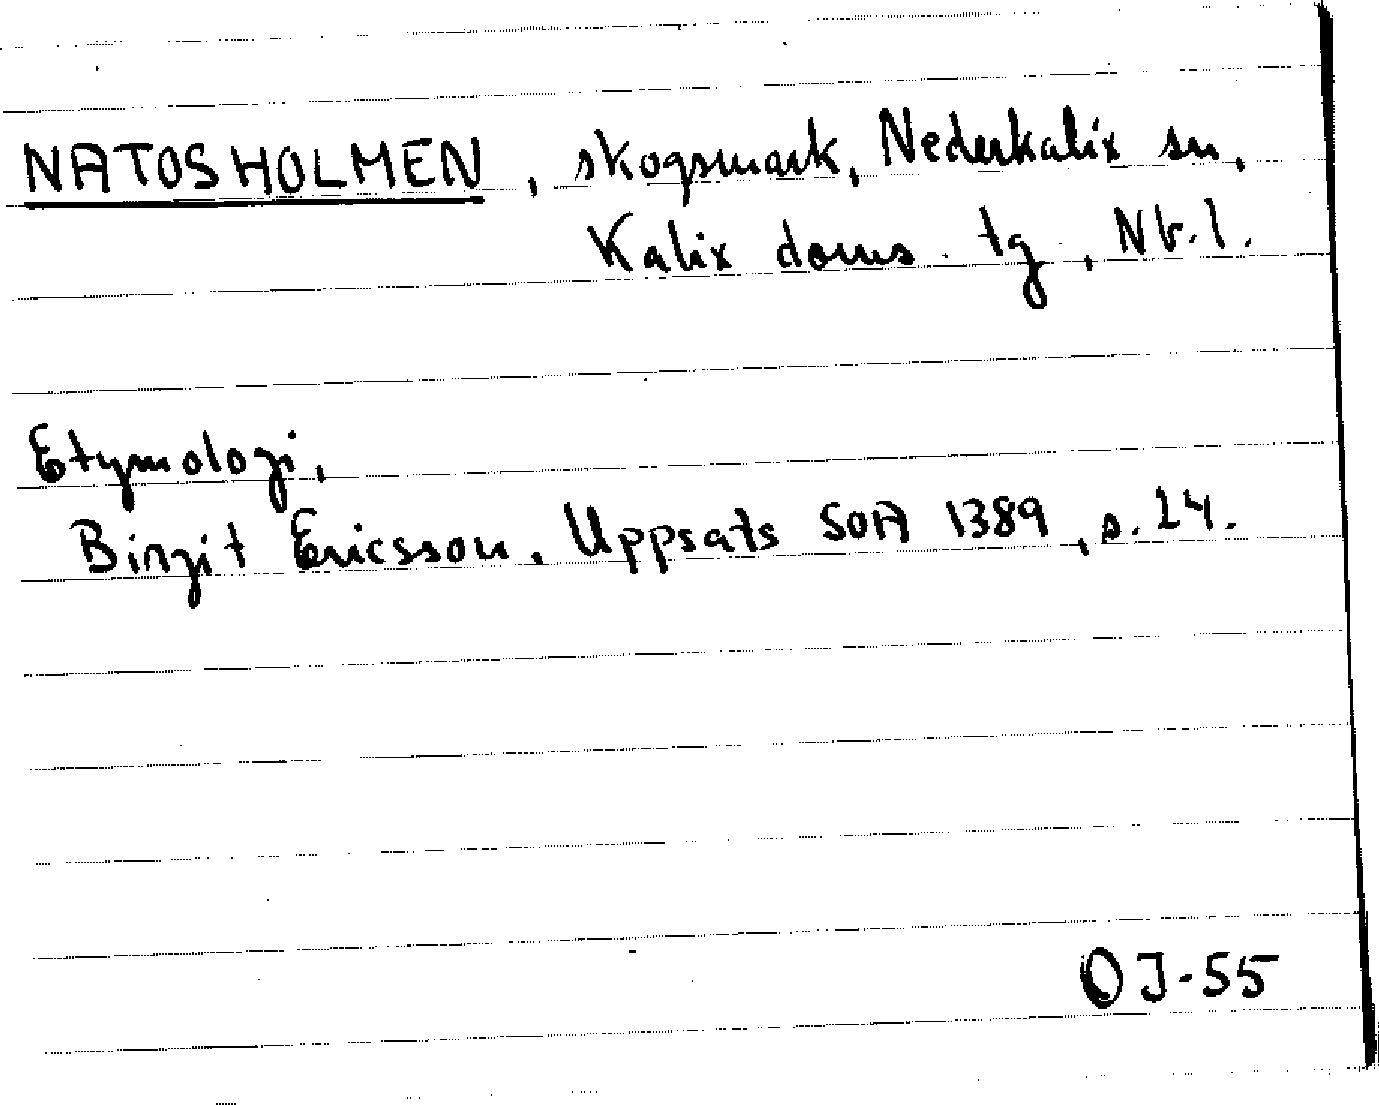 NATOSHOLMEN, skogsmark, Nederkalix sn,
Kalix doms. tg, Nb. l.
Etymologi,
Birgit Ericsson, Uppsats SOA 1389, s. 24.
OJ-55